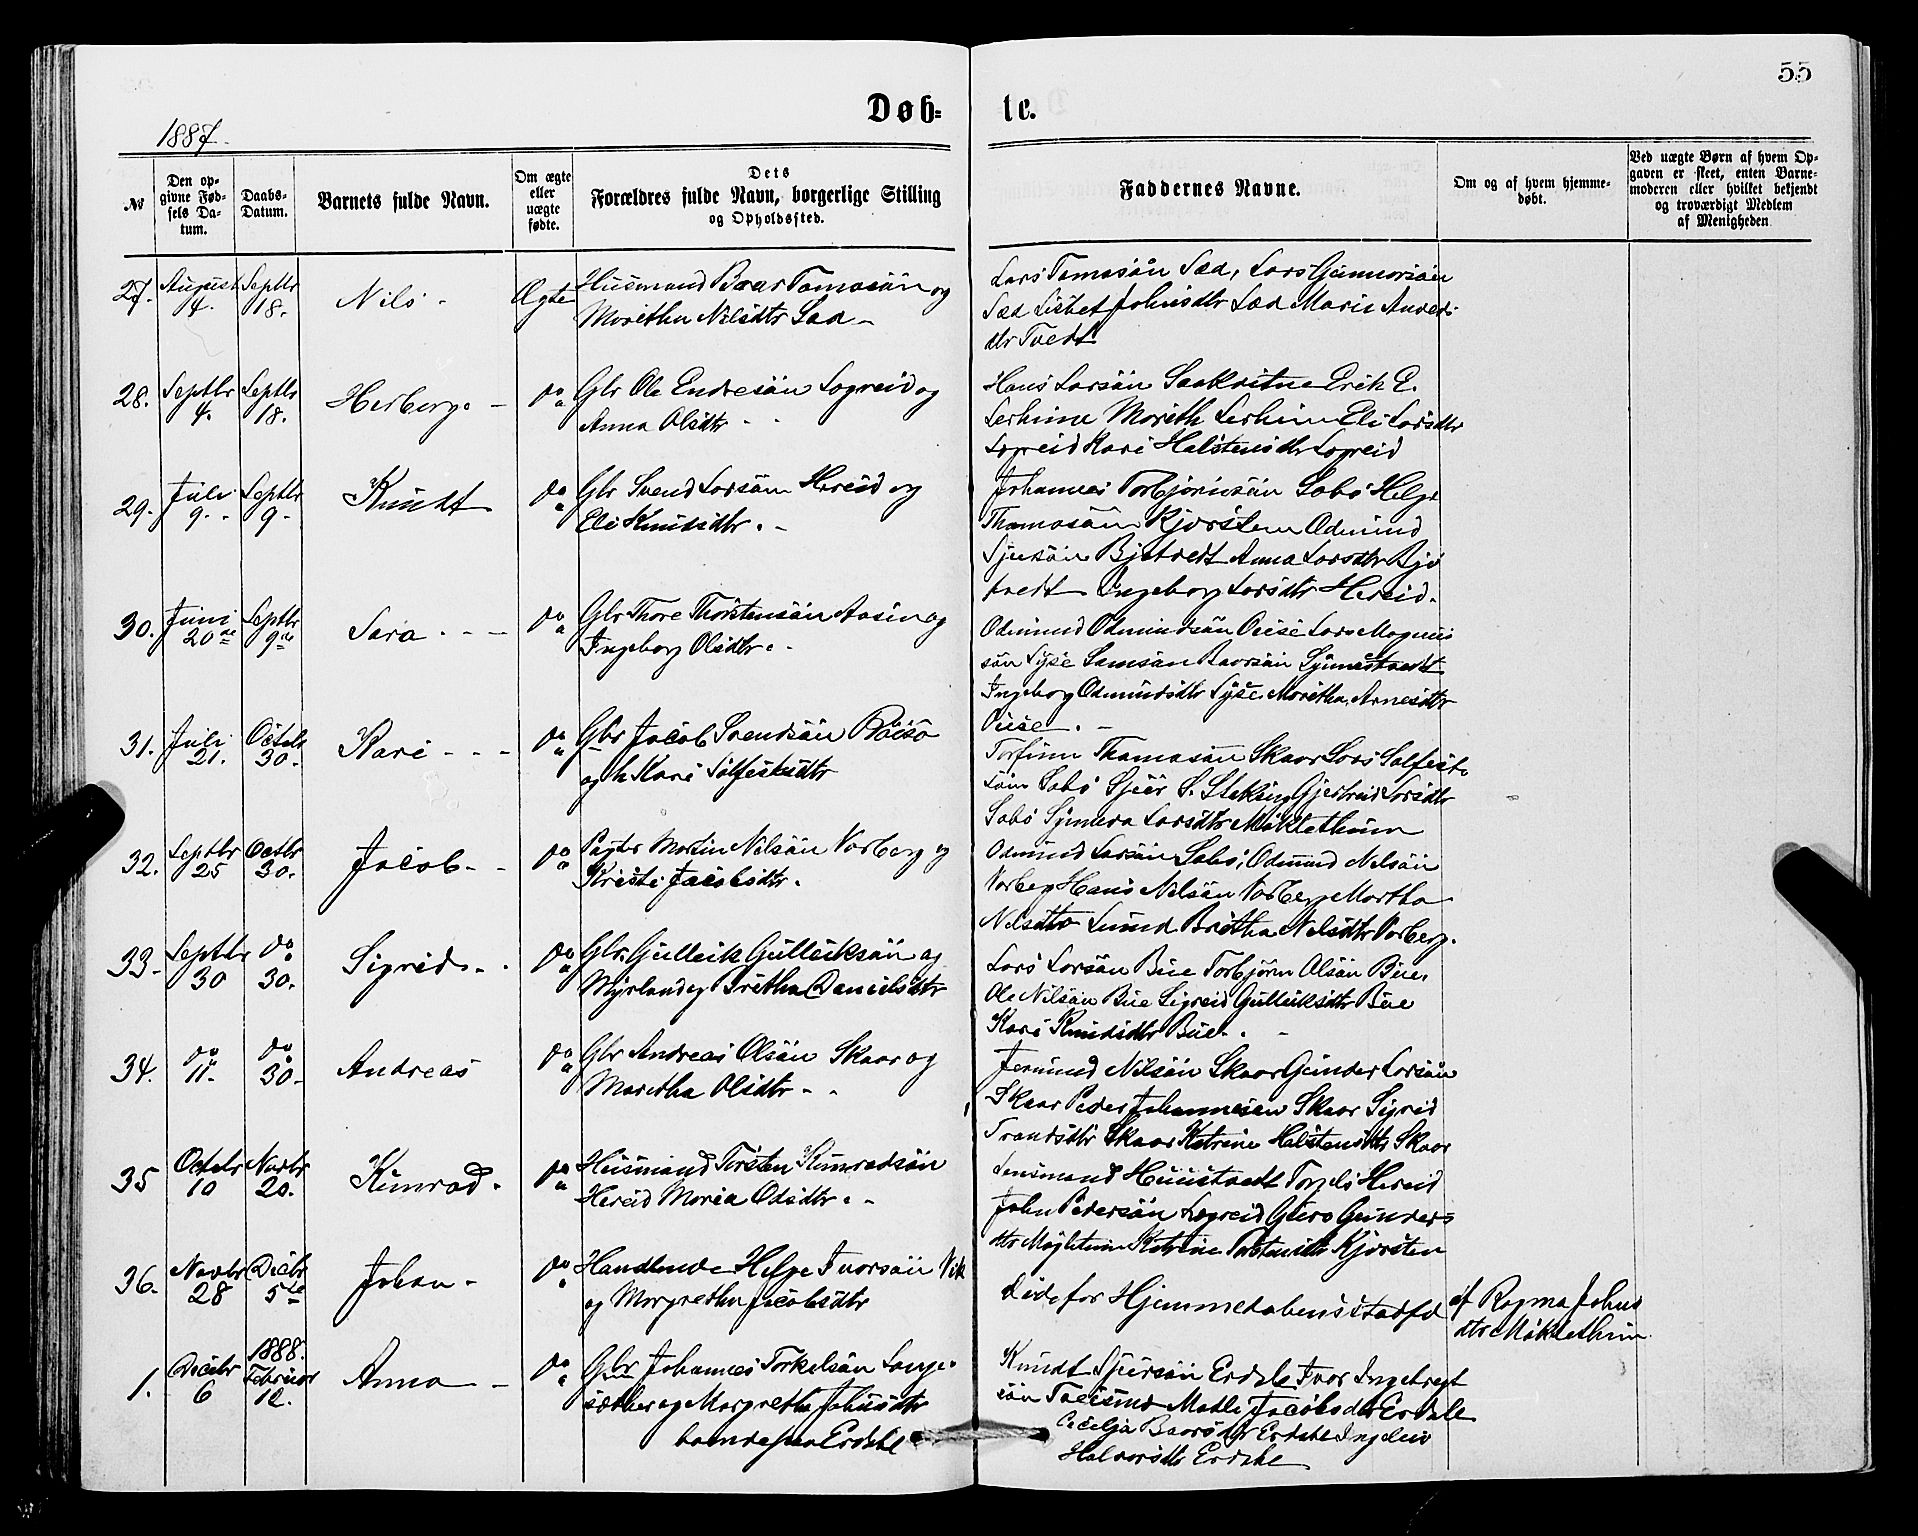 55
Døb= te.
1887.
№
Den op-
givne Fød-
sels Da-
tum.
Daabs-
Datum.
Barnets fulde Navn.
Om ægte
eller
uægte
fødte.
Dets
Forældres fulde Navn, borgerlige Stilling
og Opholdssted.
Faddernes Navne.
Om og af hvem hjemme-
døbt.
Ved uægte Børn af hvem Op-
gaven er skeet, enten Barne-
moderen eller hvilket bekjendt
og troværdigt Medlem
af Menigheden
27. August 4. Septbr 18. Nils - Ægte
Husmand Baar Tomasön og
Moritha Nilsdtr Sæd -
Lars Tomasön Sæd, Lars Gunnorsön
Sæd Lisbet Johnsdtr Sæd Marie Anders-
dtr Tvedt
28. Septbr 4. Septbr 18. Herborg. - do
Gbr Ole Endresön Legreid og
Anna Olsdtr - -
Hans Larsön Erik E.
Lerheim Morith Lerheim Eli Larsdtr
Legreid Kari Halstensdtr Legreid
29. Juli 9. - Septbr 9 - Knudt do
Gbr Svend Larsön Hereid og
Eli Knudsdtr. -
Johannes Torbjörnsön Sabö Helge
Thomasön Kjørsten Odmund
Sjursön Bjotvedt Anna Larsdtr Bjo
tvedt Ingeborg Larsdtr Hereid.
30. Juni 20de Septbr 9de Sara - - - do
Gbr Thore Thorstensön Aasen og
Ingeborg Olsdtr. -
Odmund Odmundsön Öiese Lars Magnus
sön Syse Samson Baarsön Symastvedt
Ingeborg Odmundsdtr Syse Moritha Arnesdtr
Öiese. -
31. Juli 21. Octobr 30. Kari - - - do
Gbr Jacob Svendsön Röisö
og h. Kari Solfestsdtr
Torfinn Thomasön Skaar Lars Solfest-
sön Sabö Sjur S. Gjertreid Larsdtr
Sabö Synneva Larsdtr Mäkletheim
32. Septbr 25 Octbr 30. Jacob - - do
Pagter Martin Nilsön Varberg og
Kristi Jacobsdtr.
Odmund Larsön Sabö, Odmund Nilsön
Varberg Hans Nilsön Varberg Martha
Nilsdtr Lund Britha Nilsdtr Varberg.
33 - Septbr 30 do 30. Sigrid - . do
Gbr. Gulleik Gulleiksön ag
Myrland og Britha Danielsdtr
Lars Larsön Bue Torbjörn Olsön Bue.
Ole Nilsön Bue Sigreid Gulleiksdtr Bue
Kari Knudsdtr Bue. . -
34. do 11. do 30 - Andreas do
Gbr Andreas Olsön Skaar og
Maritha Olsdtr - -
Jermund Nilsön Skaar Gunder Larsön
Skaar Peder Johannesen Skaar Sigrid
Trondsdtr Skaar Katrine Halstensdtr Skaar
35 Octobr 10 Novbr 20. Kunrad. do
Husmand Torsten Kunradsön
Hereid Maria Odsdtr. -
Lensmand Huustvedt Torgels Hereid
John Pedersön Legreid Guro Gunders=
dtr Mögletun Katrine Torstensdtr Kjørsten
36. Novbr 28 Decbr 5te Johan - do
Handlende Helge Ivarsön Vik
og Margretha Jacobsdtr
döde for Hjemmedabens stadfd
af Ragna Johns
dtr Mäkletheim
1888.
1. Decebr 6 Februar 12. Anna - do
Gbr Johannes Torkelsön Lange-
sæther og Margretha Johnsdtr
boende paa Erdahl
Knudt Sjursön Erdale Ivar Ingebregt
sön Malli Jacobsdtr Erdale
Cecelja Baarsdtr Erdahl Ingeleiv
Halvorsdtr Erdale